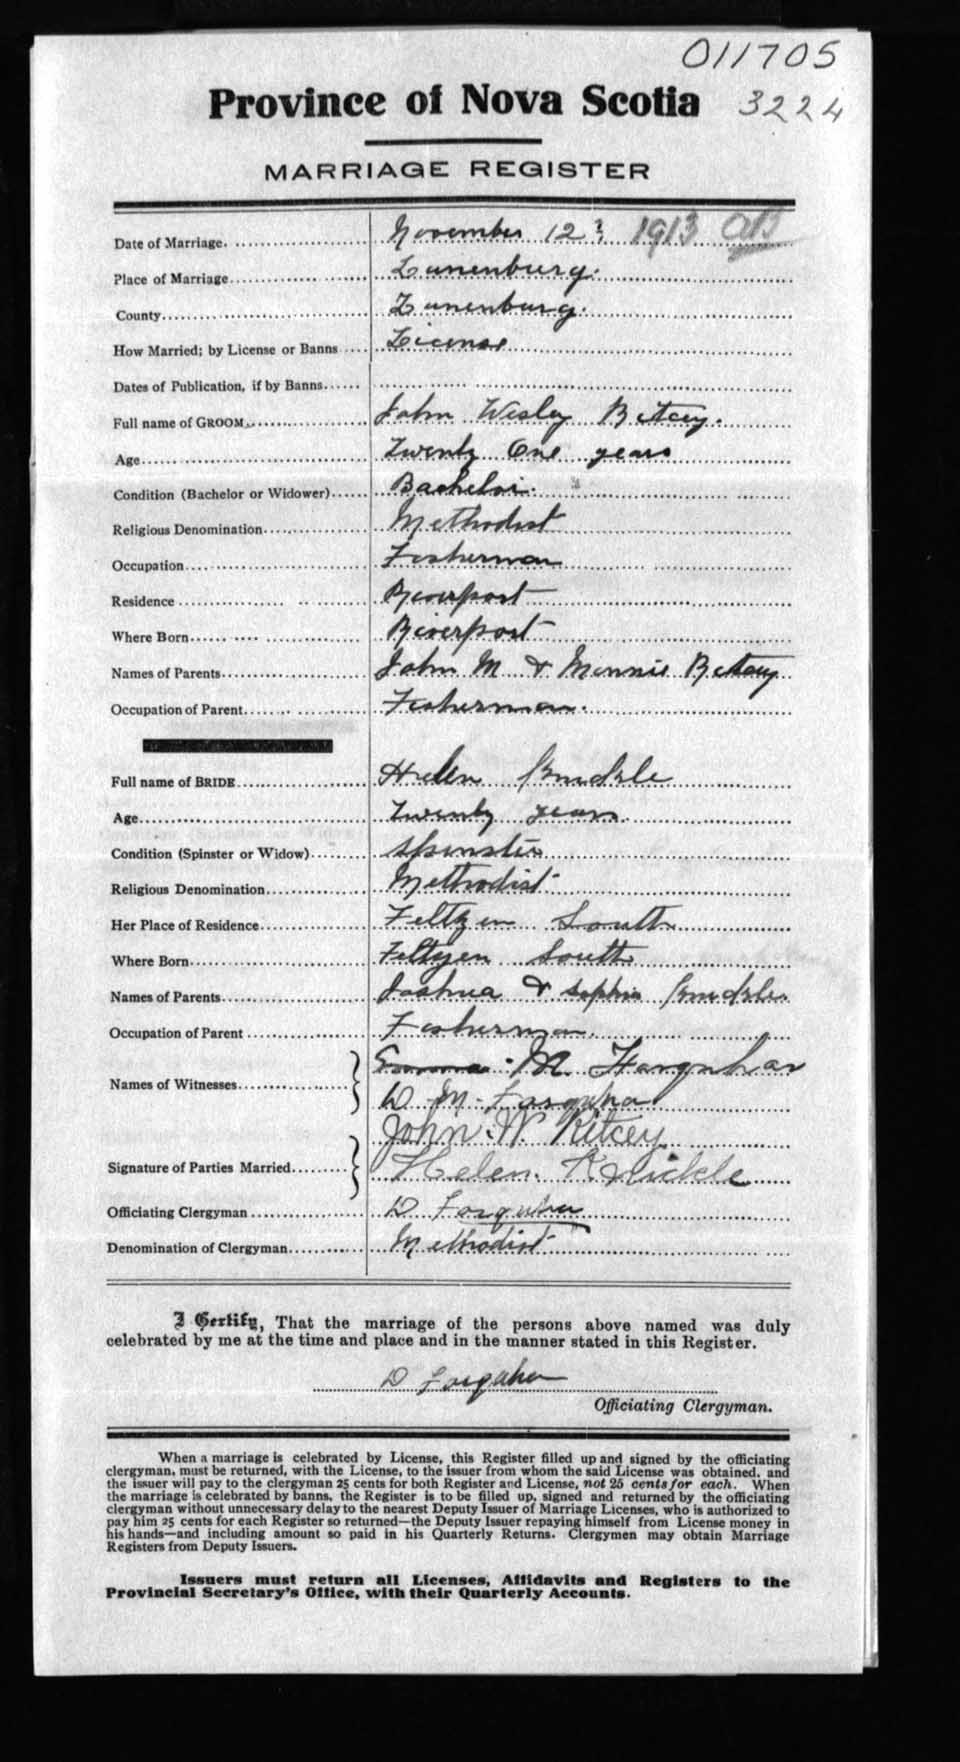 011705
Province of Nova Scotia 3224
MARRIAGE REGISTER
Date of Marriage. November 12 1913
Place of Marriage Lunenburg.
County Lunenburg.
How Married; by License or Banns License
Dates of Publication, if by Banns
Full name of GROOM John Wesley Ritcey.
Age Twenty One years
Condition (Bachelor or Widower) Bachelor.
Religious Denomination Methodist
Occupation Fisherman
Residence Riverport
Where Born Riverport
Names of Parents John M & Minnie Ritcey
Occupation of Parent Fisherman.
Full name of BRIDE Helen Knickle
Age Twenty years.
Condition (Spinster or Widow) Spinster
Religious Denomination Methodist
Her Place of Residence Feltzen South
Where Born Feltzen South
Names of Parents Joshua & Sophia Knickle
Occupation of Parent Fisherman.
Emma M. Farquhar
Names of Witnesses
D M Farquhar
John. W. Ritcey
Signature of Parties Married
Helen. Knickle
Officiating Clergyman D Farquhar
Denomination of Clergyman Methodist
I Certify, That the marriage of the persons above named was duly
celebrated by me at the time and place and in the manner stated in this Register.
D Farquhar
Officiating Clergyman.
When a marriage is celebrated by License, this Register filled up and signed by the officiating
clergyman, must be returned, with the License, to the issuer from whom the said License was obtained, and
the issuer will pay to the clergyman 25 cents for both Register and License, not 25 cents for each. When
the marriage is celebrated by banns, the Register is to be filled up, signed and returned by the officiating
clergyman without unnecessary delay to the nearest Deputy Issuer of Marriage Licenses, who is authorized to
pay him 25 cents for each Register so returned—the Deputy Issuer repaying himself from License money in
his hands—and including amount so paid in his Quarterly Returns. Clergymen may obtain Marriage
Registers from Deputy Issuers.
Issuers must return all Licenses, Affidavits and Registers to the
Provincial Secretary's Office, with their Quarterly Accounts.